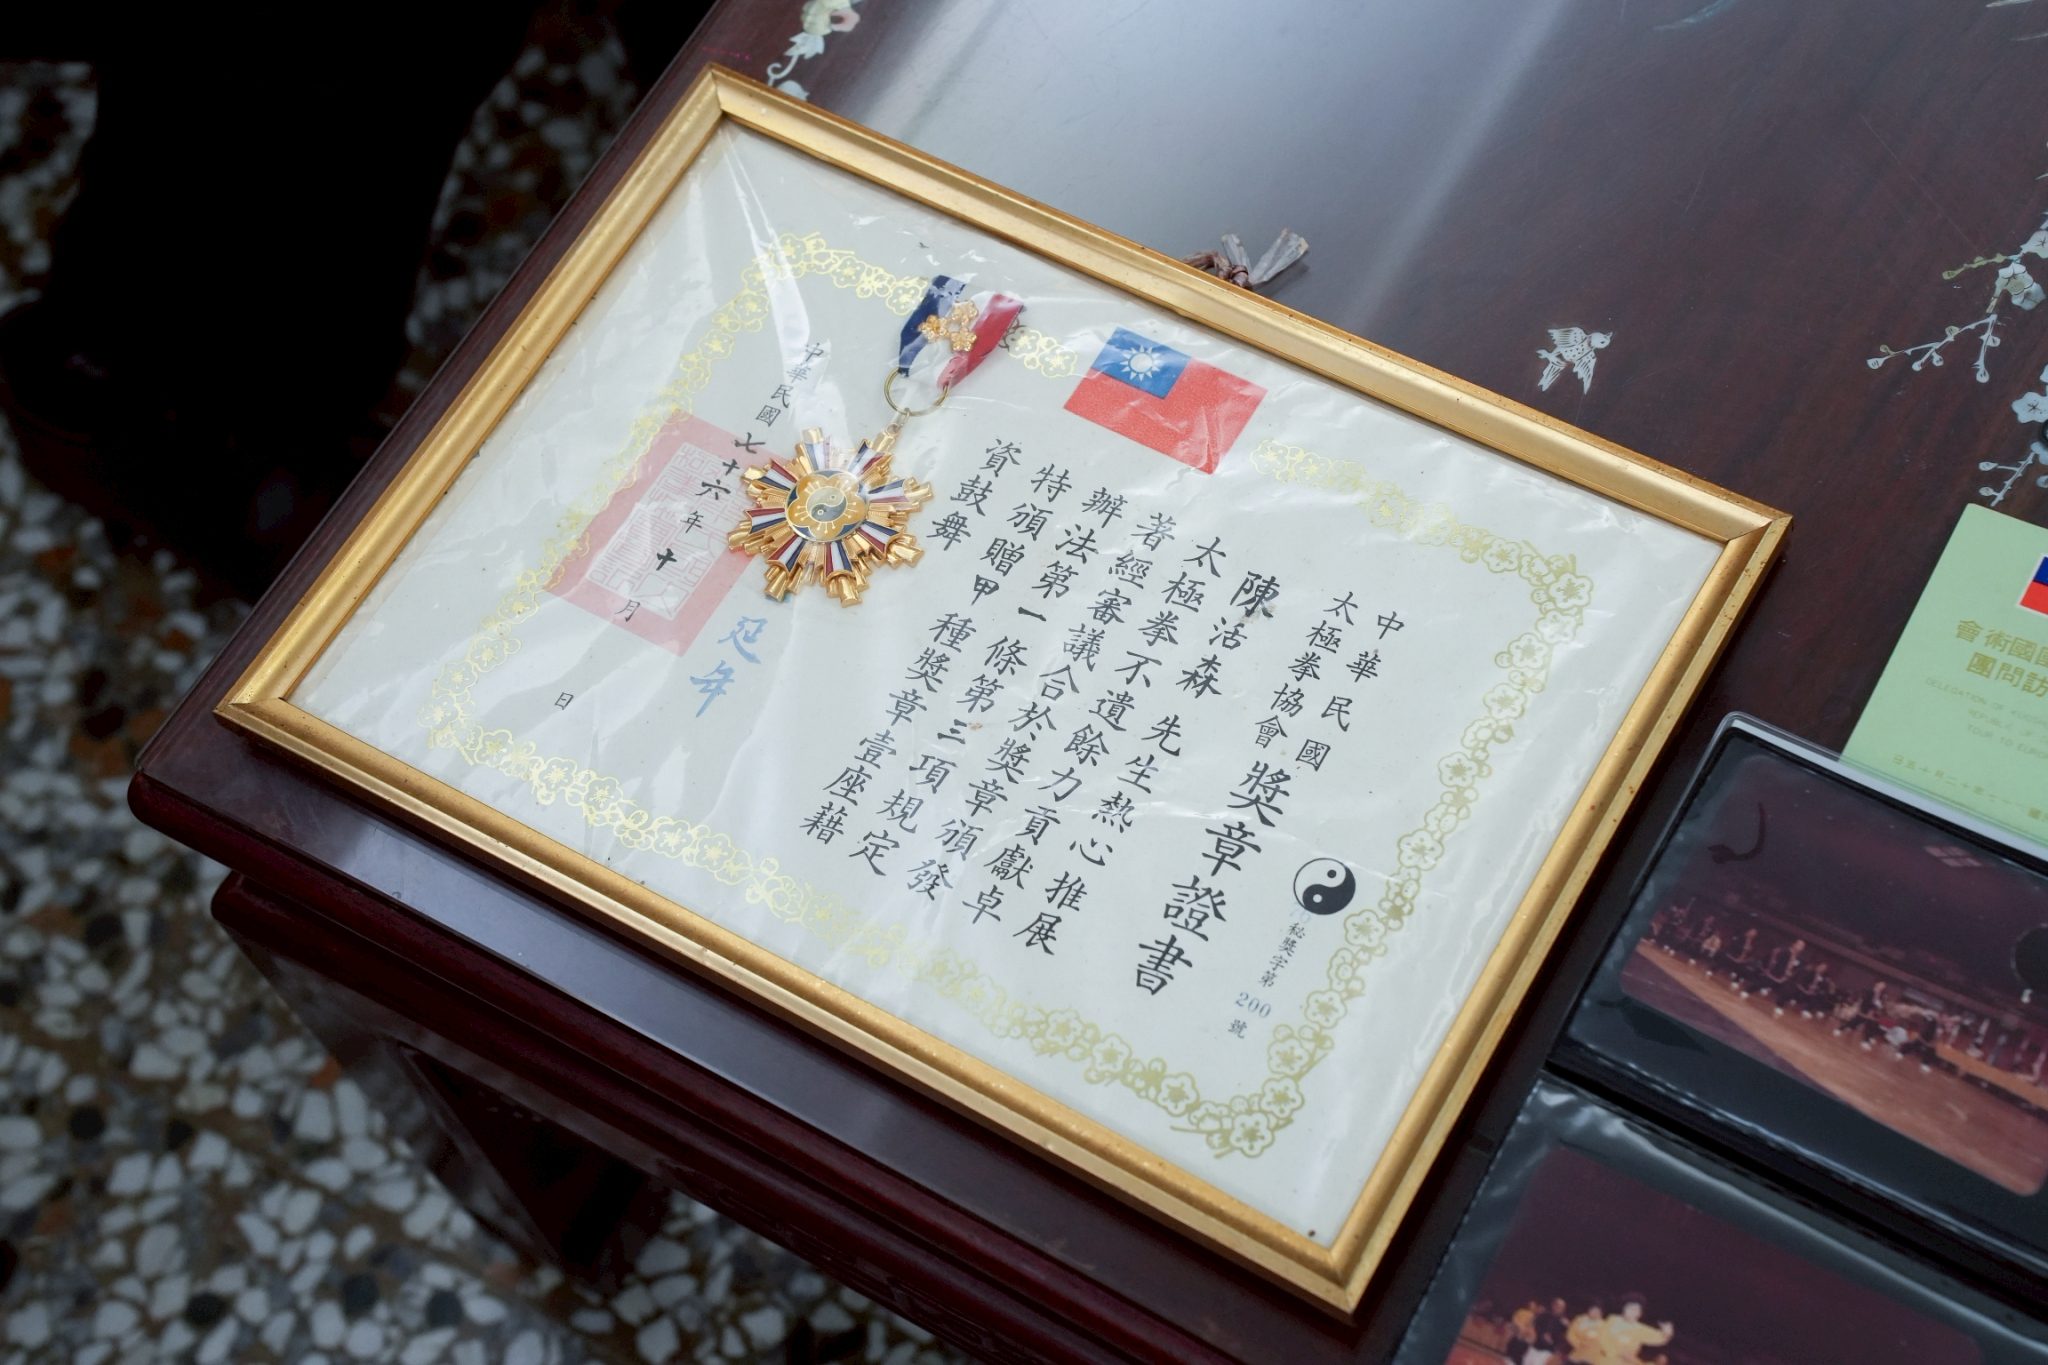 中華民國
太極拳協會
獎章證書
秘獎字第200號
陳活森先生熱心推展
太極拳不遺餘力貢獻卓
著經審議合於獎章頒發
辦法第一條第三項規定
特頒贈甲種獎章壹座藉
資鼓舞
延年
中華民國七十六年十月 日
國術會
訪問團
DELEGATION OF
日五十月二十